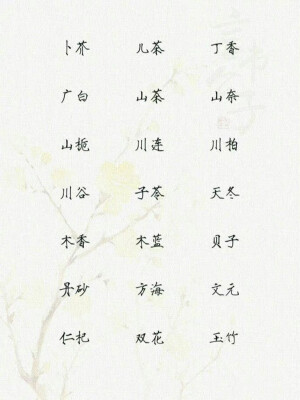 卜芥 儿茶 丁香
广白 山茶 山奈
山栀 川连 川柏
川谷 子苓 天冬
木香 木蓝 贝子
丹砂 方海 文元
仁杞 双花 玉竹